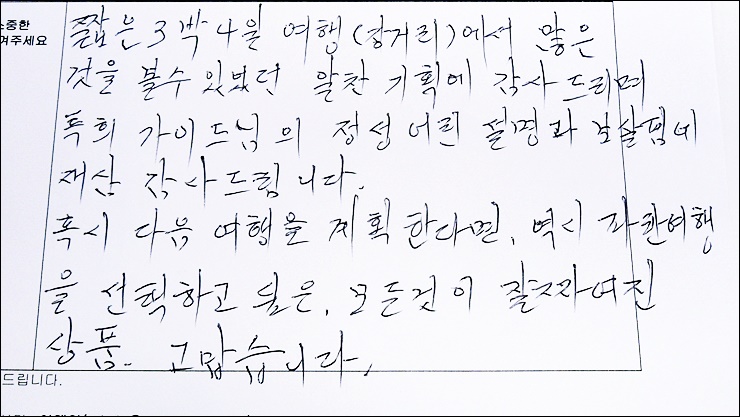 소중한
겨주세요
짧은 3박4일 여행(장거리)에서 많은
것을 볼수 있었던 알찬 기획에 감사드리며
특히 가이드님의 정성어린 설명과 보살핌에
재삼 감사드립니다.
혹시 다음 여행을 계획한다면, 역시 참한여행
을 선택하고 싶은, 모든것이 잘짜여진
상품. 고맙습니다.
드립니다.